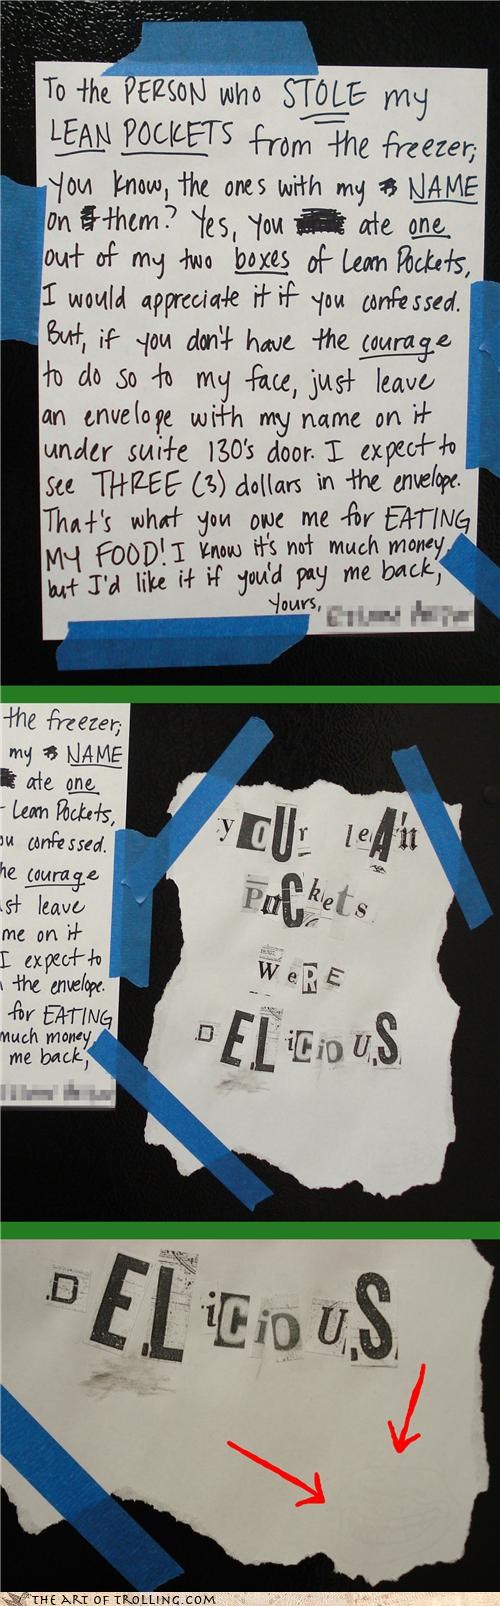 To the PERSON who STOLE my
LEAN POCKETS from the freezer;
you know, the ones with my NAME
on them? Yes, you ate one
out of my two boxes of Lean Pockets,
I would appreciate it if you confessed.
But, if you don't have the courage
to do so to my face, just leave
an envelope with my name on it
under suite 130's door. I expect to
see THREE (3) dollars in the envelope.
That's what you owe me for EATING
MY FOOD! I know it's not much money,
but I'd like it if you'd pay me back,
Yours,
the freezer;
my NAME
ate one
Lean Pockets,
ou confessed.
he courage
st leave
me on it
I expect to
the envelope.
for EATING
much money,
me back,
yOUr leAn
PoCkets
WeRE
DELiCiOUS
DELiCiOUS
THE ART OF TROLLING.COM